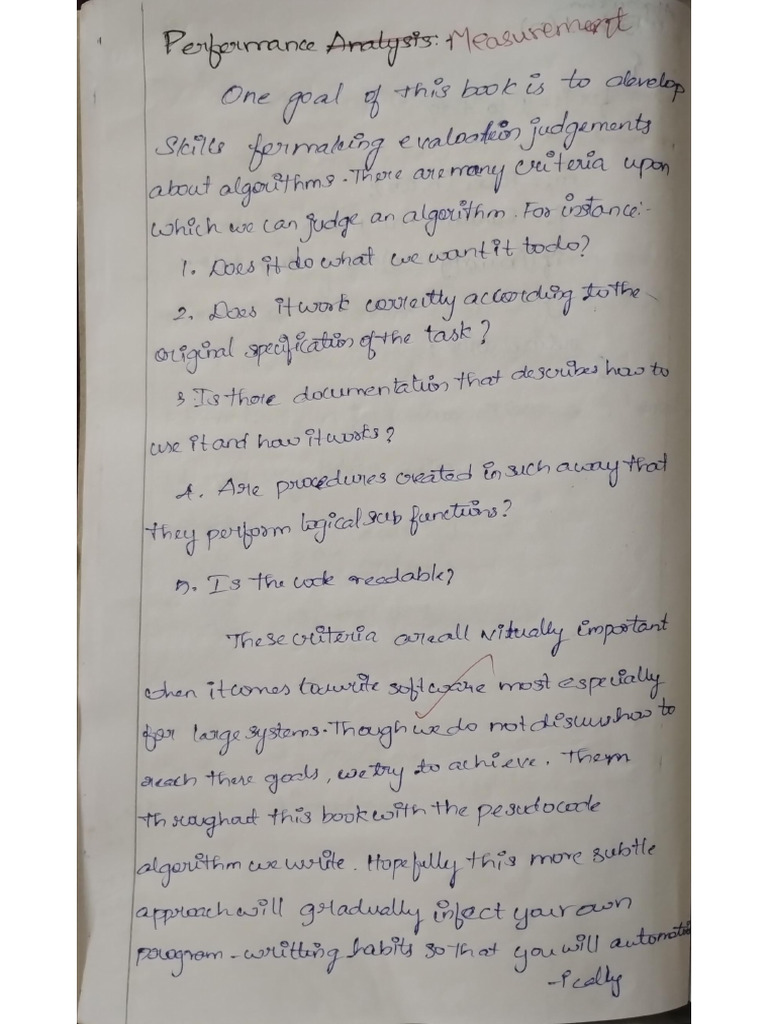 Performance Analysis: Measurement
One goal of this book is to develop
skills for making evaluation judgements
about algorithms. There are many criteria upon
which we can judge an algorithm. For instance:-
1. Does it do what we want it to do?
2. Does it work correctly according to the
original specification of the task?
3 Is there documentation that describes how to
use it and how it works?
4. Are procedures created in such a way that
they perform logical sub functions?
5. Is the code readable?
These criteria are all vitually important
when it comes to write software most especially
for large systems. Though we do not discuss how to
reach these goals, we try to achieve. Them
throughout this book with the pesudocode
algorithm we write. Hopefully this more subtle
approach will gradually infect your own
program-writting habits so that you will automati
-ically